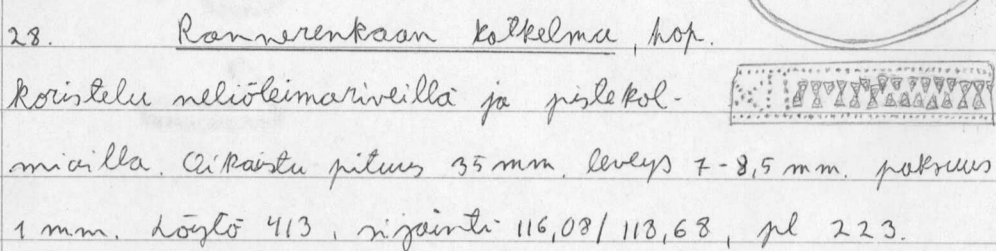 28. Rannerenkaan katkelma, hop.
koristelu neliöleimariveillä ja pistekol-
mioilla. Oikaistu pituus 35 mm. leveys 7-8,5 mm. paksuus
1 mm. Löytö 413, sijainti 116,08/118,68, pl 223.